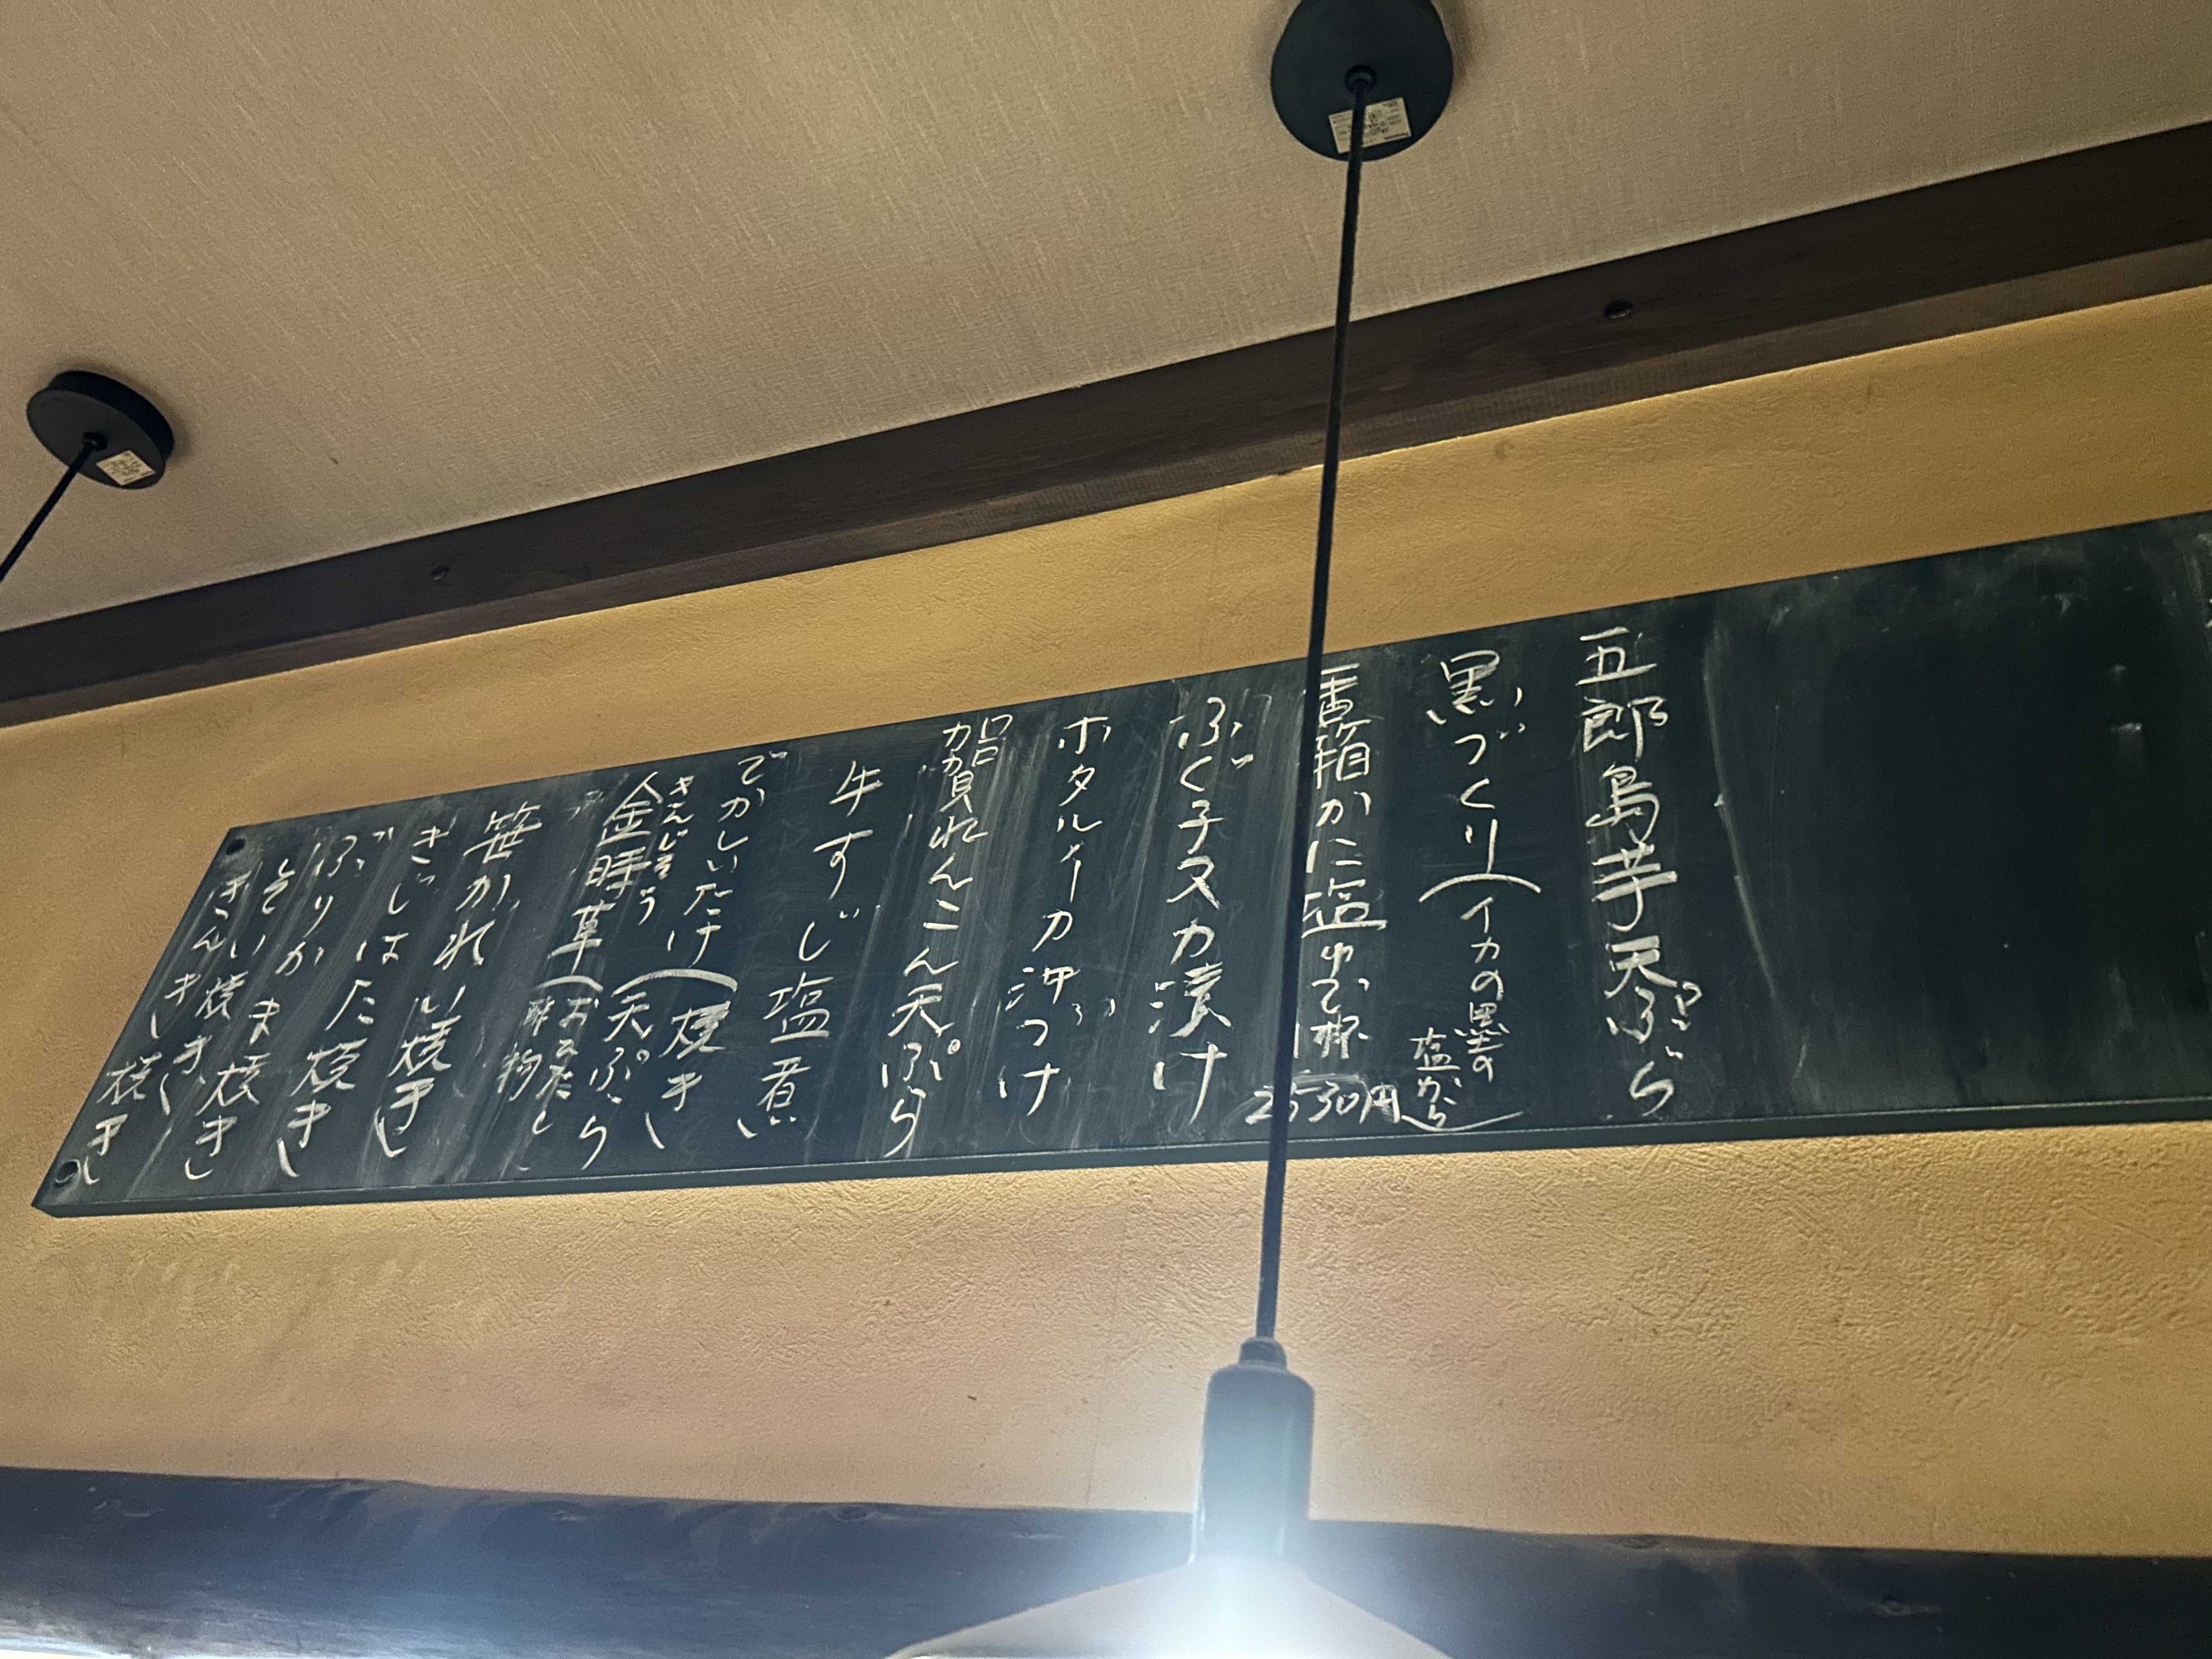 五郎島芋天ぷら
黒づくり(イカの黒の塩から)
香箱かに塩ゆで1杯2530円
ふぐ子ヌカ漬け
ホタルイカ沖づけ
加賀れんこん天ぷら
牛すじ塩煮
でかしいたけ(焼き 天ぷら
きんじそう
金時草(おひたし 酢物
笹かれい焼き
ぎっしはた焼き
ぶりかま焼き
焼き
きんき焼き